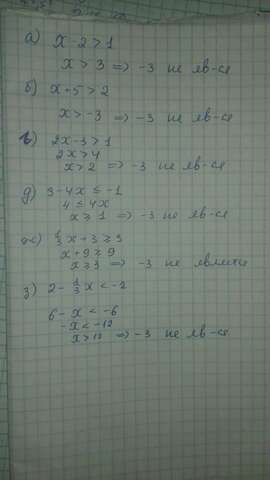 а) x - 2 > 1
x > 3 => -3 не яв-ся
б) x + 5 > 2
x > -3 => -3 не яв-ся
в) 2x - 3 > 1
2x > 4
x > 2 => -3 не яв-ся
д) 3 - 4x ≤ -1
4 ≤ 4x
x ≥ 1 => -3 не яв-ся
ж) 1/3 x + 3 ≥ 3
x + 9 ≥ 9
x ≥ 3 => -3 не является
з) 2 - 1/3 x < -2
6 - x < -6
-x < -12
x > 12 => -3 не яв-ся